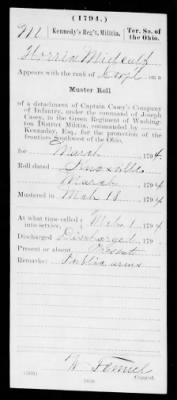 (1794.)
M | Kennedy's Reg't, Militia. | Ter. So. of the Ohio.
Metcalf
Appears with the rank of Corpl on a
Muster Roll
of a detachment of Captain Casey's Company
of Infantry, under the command of Joseph
Casey, in the Green Regiment of Washing-
ton District Militia, commanded by
Kennaday, Esq., for the protection of the
frontiers Southwest of the Ohio,
for March 1794.
Roll dated Knoxville
March 1794
Mustered in Mch 18, 1794
At what time called into service, Mch 1, 1794
Discharged Discharged, 179
Present or absent, Present
Remarks: Public arms
Copyist.